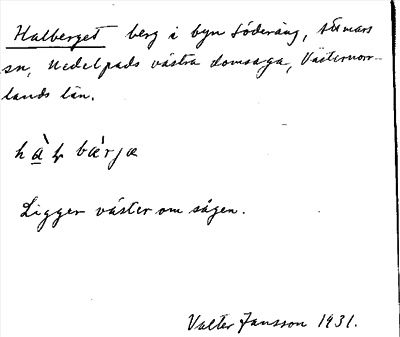 Halberget berg i byn Söderäng, Attmars
sn, Medelpads västra domsaga, Västernorr-
lands län.
hàḷ bærjæ
Ligger väster om sågen.
Valter Jansson 1931.